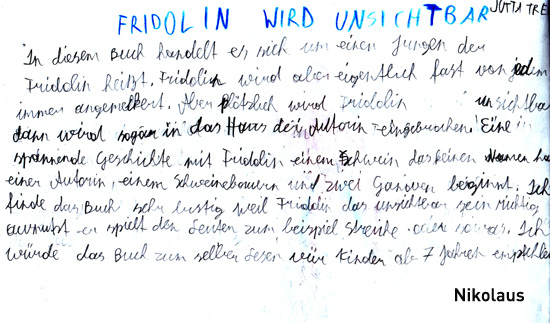 FRIDOLIN WIRD UNSICHTBAR JUTTA TRE
In diesem Buch handelt es sich um einen Jungen der
Fridolin heitzt. Fridolin wird aber eigentlich fast von jedem
immer angemeckert. Aber plötzlich wird Fridolin unsichtba
dann wird sogar in das Haus der Autorin eingebrochen! Eine
spannende Geschichte mit Fridolin einem Schwein das keinen Namen ha
einer Autorin, einem Schweinebauern und zwei Ganoven beginnt. Ich
finde das Buch sehr lustig weil Fridolin das unsichtbar sein richtig
ausnutzt er spielt den Leuten zum beispiel streiche oder sowas. Ich
würde das Buch zum selber lesen für Kinder ab 7 Jahren empfehlen
Nikolaus